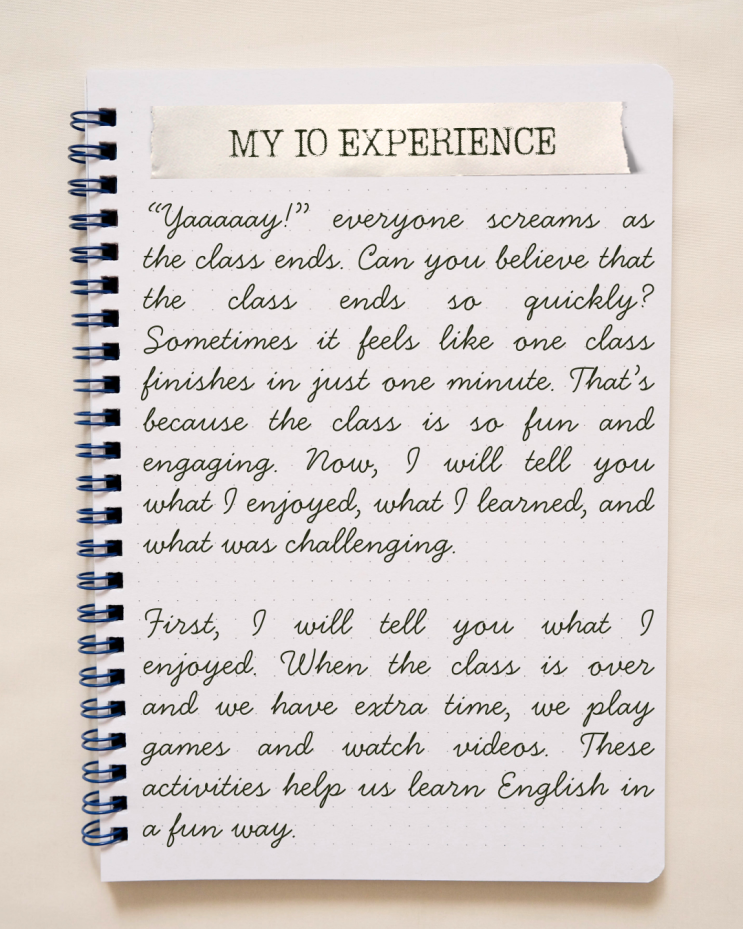 MY IO EXPERIENCE
“Yaaaaay!” everyone screams as
the class ends. Can you believe that
the class ends so quickly?
Sometimes it feels like one class
finishes in just one minute. That’s
because the class is so fun and
engaging. Now, I will tell you
what I enjoyed, what I learned, and
what was challenging.
First, I will tell you what I
enjoyed. When the class is over
and we have extra time, we play
games and watch videos. These
activities help us learn English in
a fun way.